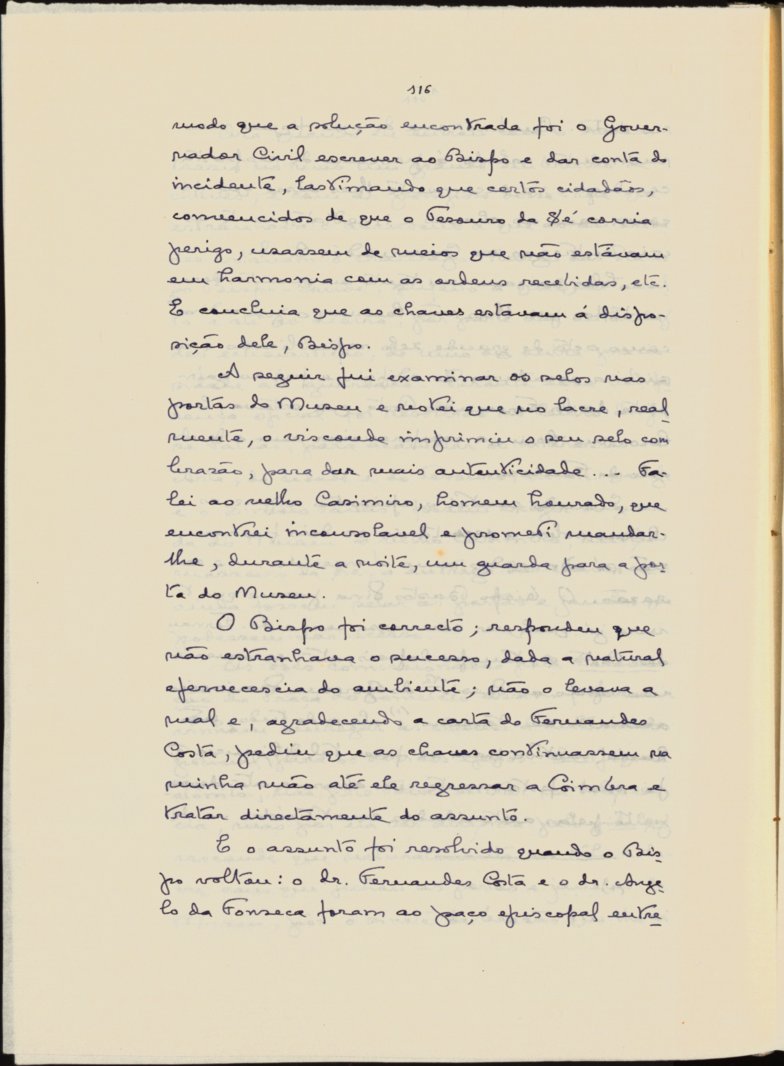 116
modo que a solução encontrada foi o Gover-
nador Civil escrever ao Bispo e dar conta do
incidente, lastimando que certos cidadãos,
convencidos de que o Tesouro da Sé corria
perigo, usassem de meios que não estávam
em harmonia com as ordens recebidas, etc.
E concluia que as chaves estavam á dispo-
sição dele, Bispo.
A seguir fui examinar os selos nas
portas do Museu e notei que no lacre, real-
mente, o visconde imprimiu o seu selo com
brazão, para dar mais autenticidade... Fa-
lei ao velho Casimiro, homem honrado, que
encontrei inconsolavel e prometi mandar-
lhe, durante a noite, um guarda para a por-
ta do Museu.
O Bispo foi correcto; respondeu que
não estranhava o sucesso, dada a natural
efervecescia do ambiente; não o levava a
mal e, agradecendo a carta do Fernandes
Costa, pediu que as chaves continuassem na
minha mão até ele regressar a Coimbra e
tratar directamente do assunto.
E o assunto foi resolvido quando o Bis-
po voltou: o dr. Fernandes Costa e o dr. Ange-
lo da Fonseca foram ao paço episcopal entre-